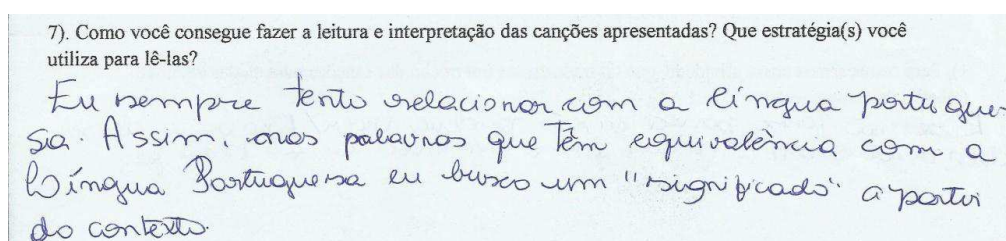 7). Como você consegue fazer a leitura e interpretação das canções apresentadas? Que estratégia(s) você
utiliza para lê-las?
Eu sempre tento relacionar com a língua portugue-
sa. Assim, nas palavras que têm equivalência com a
Língua Portuguesa eu busco um "significado" a partir
do contexto.